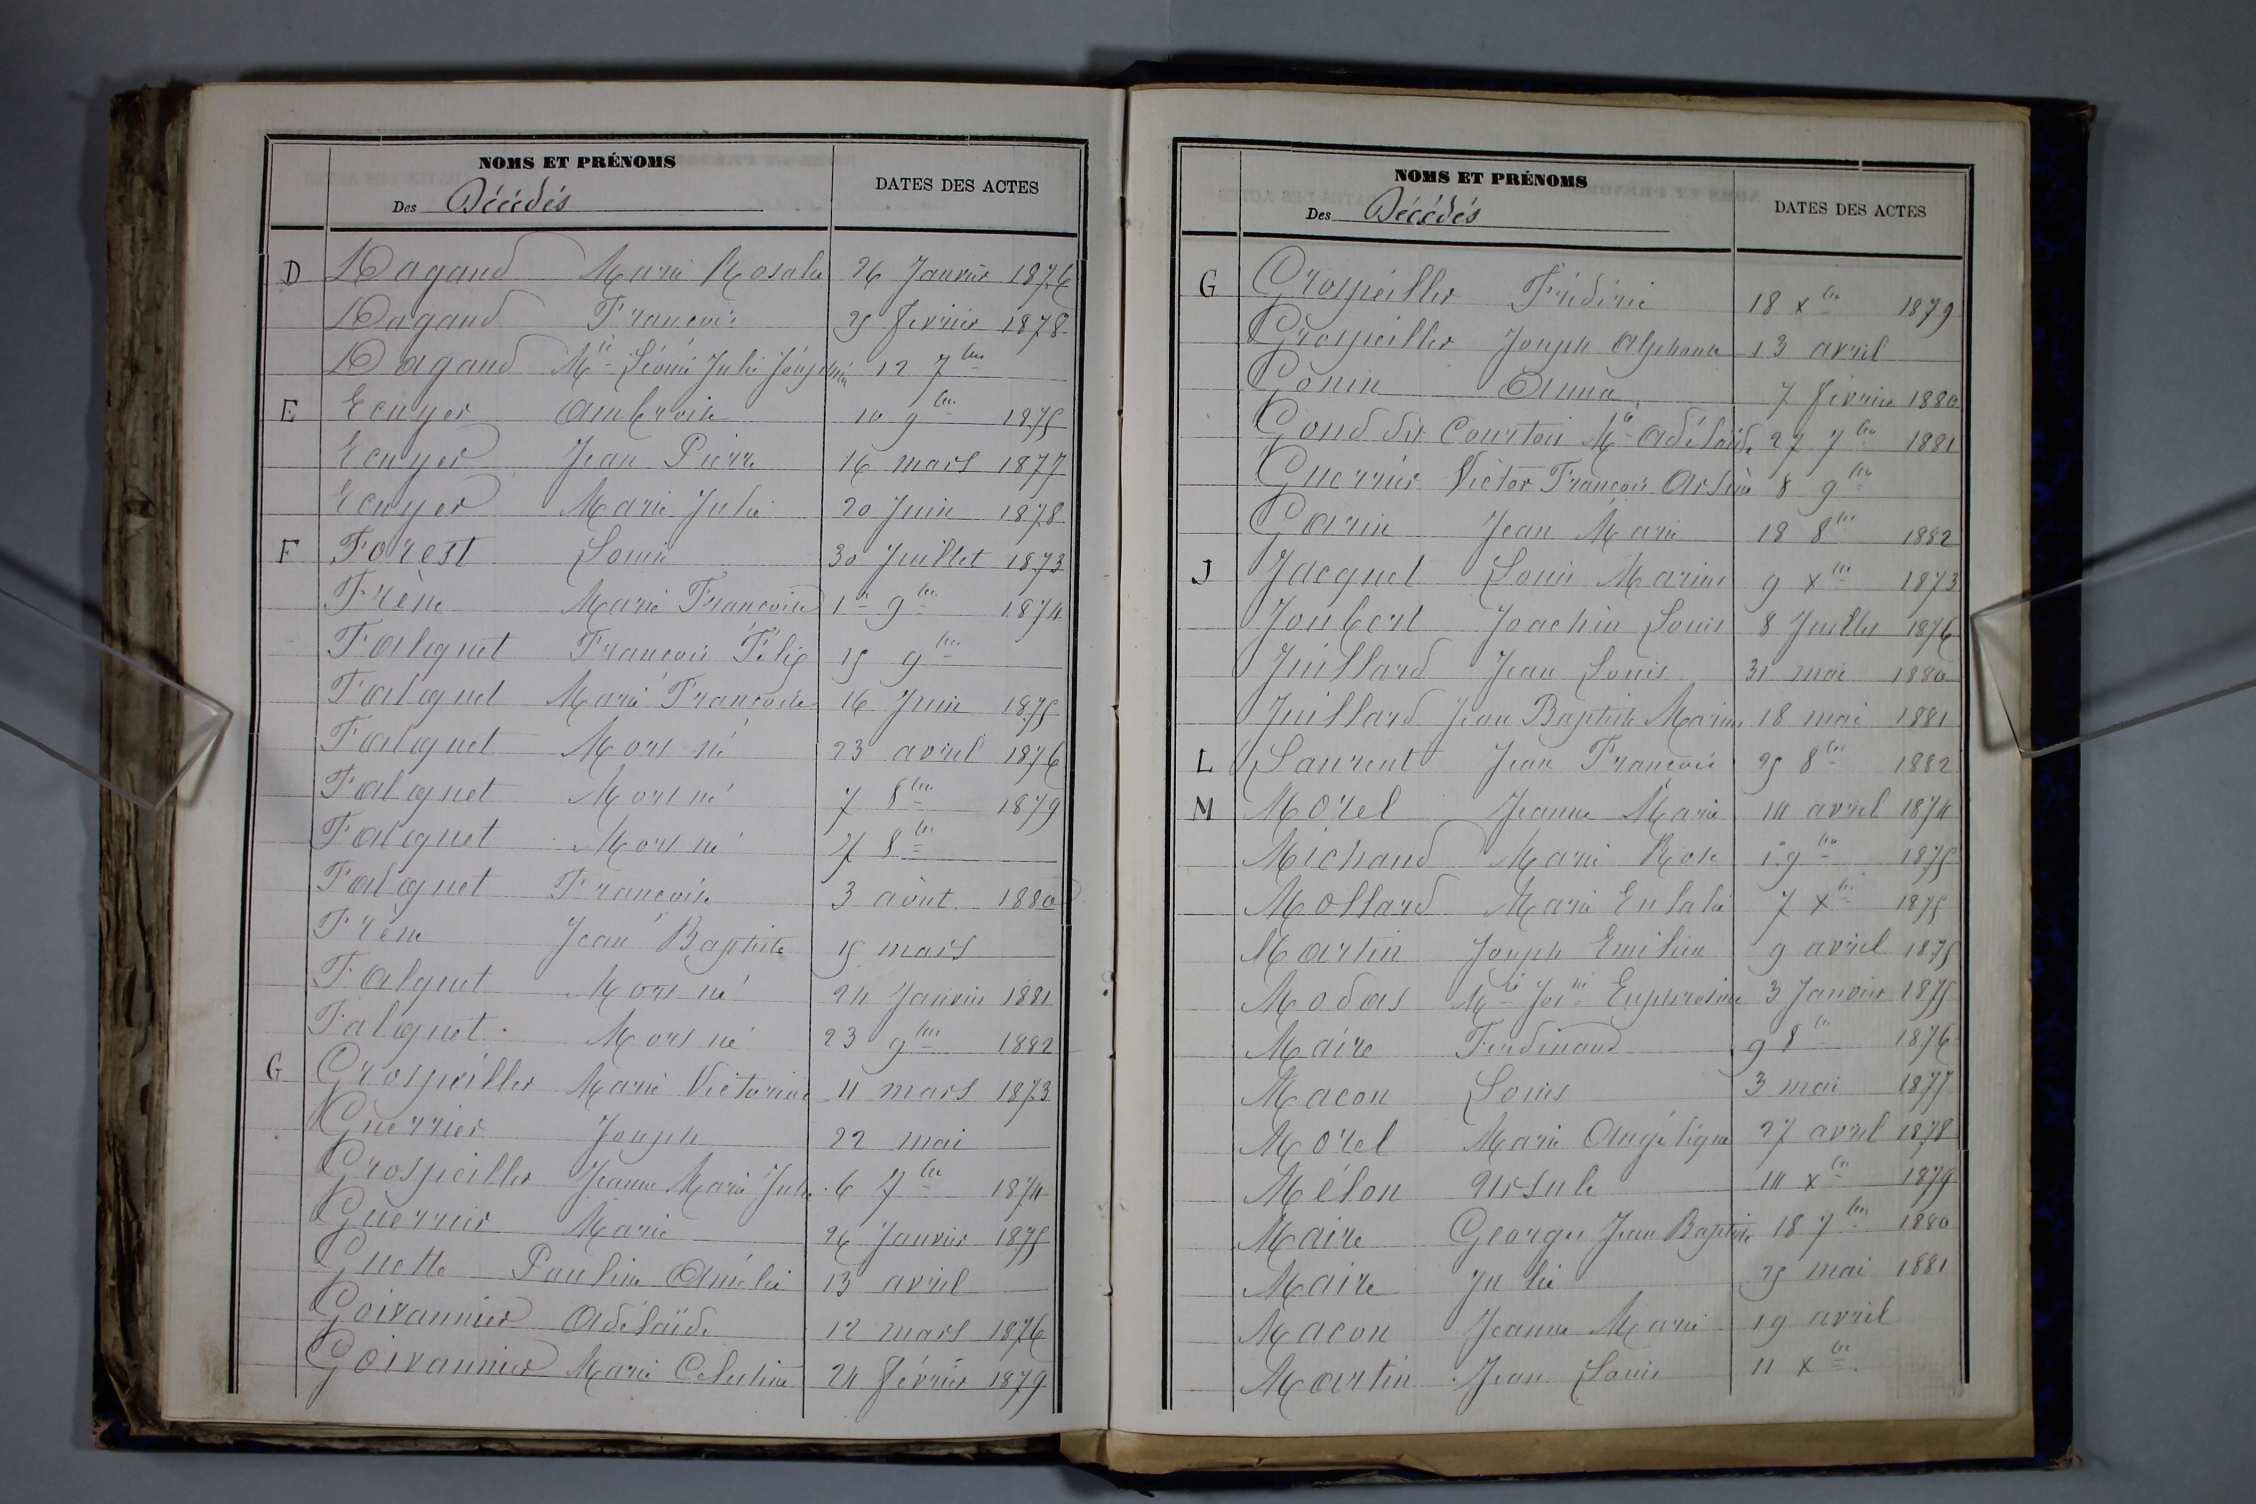 NOMS ET PRÉNOMS
Des Décédés
DATES DES ACTES
D Dagand Marie Rosalie 26 Janvier 1876
Dagand François 25 février 1878
Dagand Mie Léonie Julie Joséphine 12 7bre
E Ecuyer Ambroise 10 9bre 1875
Ecuyer Jean Pierre 16 mars 1877
Ecuyer Marie Julie 20 Juin 1878
F Forest Louis 30 Juillet 1873
Frène Marie Françoise 1er 9bre 1874
Falquet François Félix 15 9bre
Falquet Marie Françoise 16 Juin 1875
Falquet Mort né 23 avril 1876
Falquet Mort né 7 8bre 1879
Falquet Mort né 7 8bre
Falquet Françoise 3 août 1880
Frène Jean Baptiste 15 mars
Falquet Mort né 24 Janvier 1881
Falquet Mort né 23 9bre 1882
G Grospeiller Marie Victorine 11 mars 1873
Guerrier Joseph 22 mai
Grospeiller Jeanne Marie Julie 6 7bre 1874
Guerrier Marie 26 Janvier 1875
Guette Pauline Amélie 13 avril
Goivannier Adélaïde 12 mars 1876
Goivannier Marie Celestine 24 février 1879
NOMS ET PRÉNOMS
Des Décédés
DATES DES ACTES
G Grospeiller Frédéric 18 xbre 1879
Grospeiller Joseph Alphonse 13 avril
Gonin Anna 7 février 1880
Gond dit Courtois Mie Adélaïde 27 7bre 1881
Guerrier Victor François Arsène 8 9bre
Garin Jean Marie 18 8bre 1882
J Jacquet Louis Marius 9 xbre 1873
Joubert Joachim Louis 8 Juillet 1876
Juillard Jean Louis 31 mai 1880
Juillard Jean Baptiste Marius 18 mai 1881
L Laurent Jean François 25 8bre 1882
M Morel Jeanne Marie 14 avril 1874
Michaud Marie Rose 1 9bre 1875
Mollard Marie Eulalie 7 xbre 1875
Martin Joseph Emilien 9 avril 1875
Modas Mie Jos.ne Euphrosine 3 Janvier 1875
Maire Ferdinand 9 8bre 1876
Macon Louis 3 mai 1877
Morel Marie Angélique 27 avril 1878
Mélon Ursule 14 xbre 1879
Maire Georges Jean Baptiste 18 7bre 1880
Maire Julie 25 mai 1881
Macon Jeanne Marie 19 avril
Martin Jean Louis 11 xbre